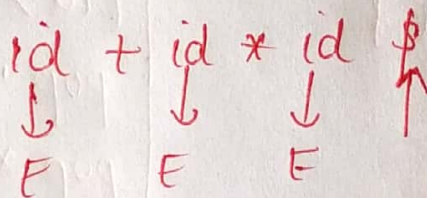 id + id * id $
E E E